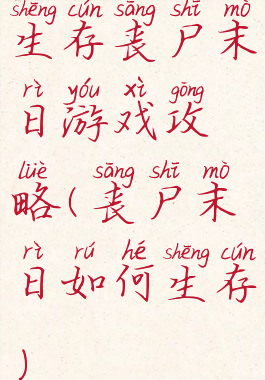 shēng cún sāng shī mò
生存丧尸末
rì yóu xì gōng
日游戏攻
lüè sāng shī mò
略(丧尸末
rì rú hé shēng cún
日如何生存
)